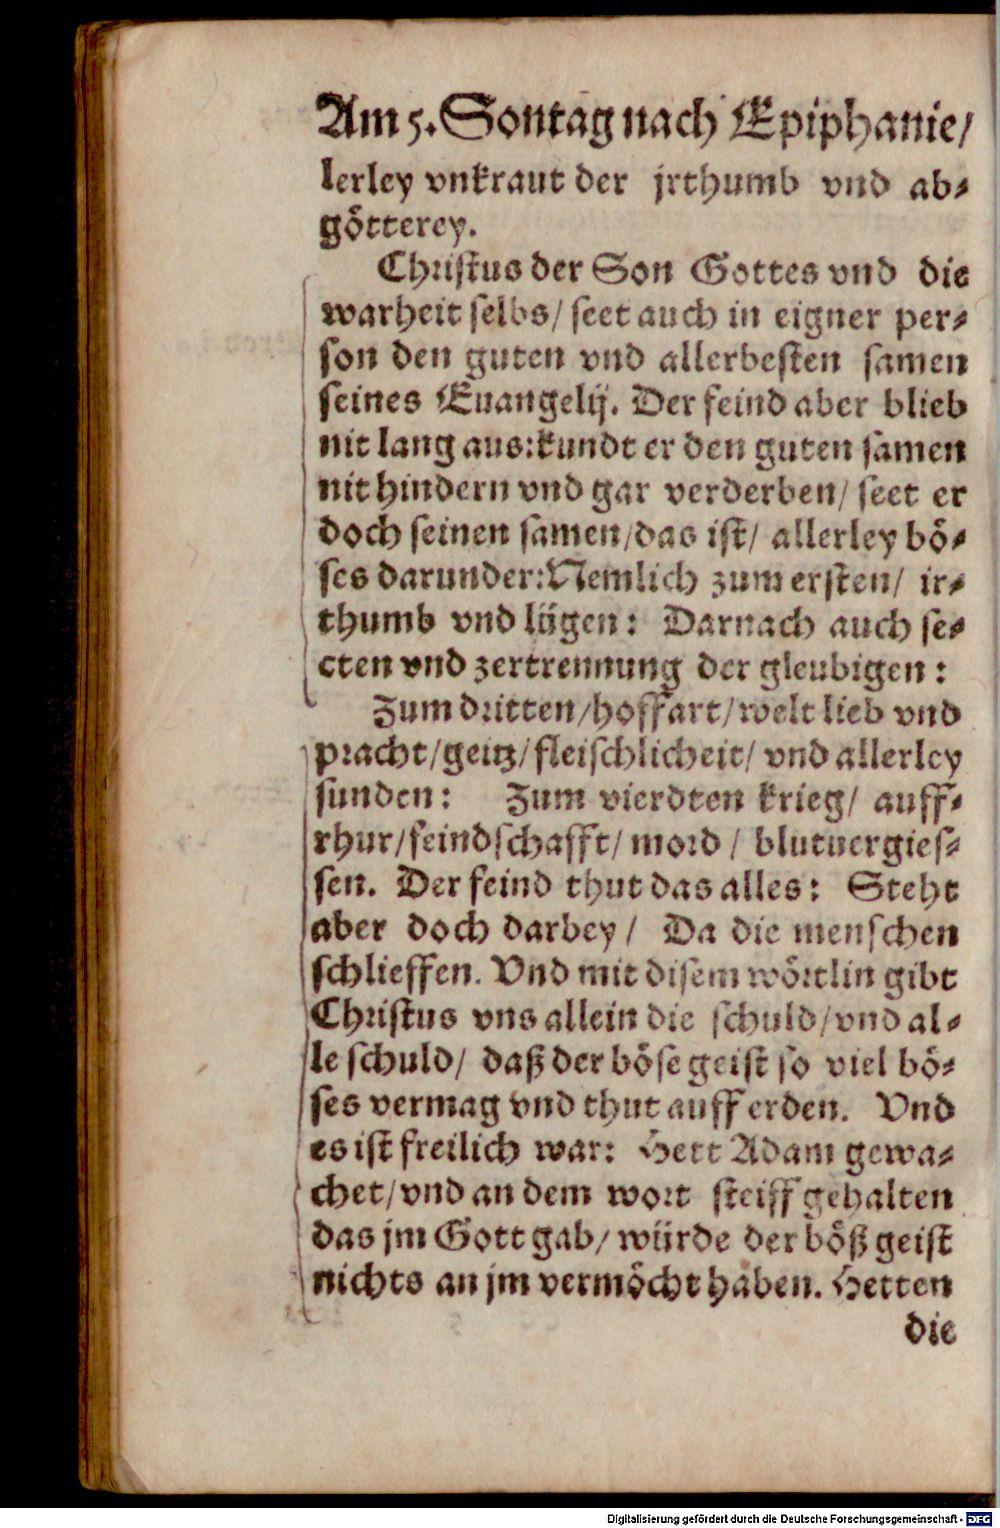 Am 5. Sontag nach Epiphanie/
lerley vnkraut der jrthumb vnd ab⸗
götterey.
Christus der Son Gottes vnd die
warheit selbs/ seet auch in eigner per⸗
son den guten vnd allerbesten samen
seines Euangelij. Der feind aber blieb
nit lang aus: kundt er den guten samen
nit hindern vnd gar verderben/ seet er
doch seinen samen/ das ist/ allerley bö⸗
ses darunder: Nemlich zum ersten/ ir⸗
thumb vnd lügen: Darnach auch se⸗
cten vnd zertrennung der gleubigen:
Zum dritten/ hoffart/ welt lieb vnd
pracht/ geitz/ fleischlicheit/ vnd allerley
sunden: Zum vierdten krieg/ auff⸗
rhur/ feindschafft/ mord/ blutuergies⸗
sen. Der feind thut das alles: Steht
aber doch darbey/ Da die menschen
schlieffen. Vnd mit disem wörtlin gibt
Christus vns allein die schuld/ vnd al⸗
le schuld/ daß der böse geist so viel bö⸗
ses vermag vnd thut auff erden. Vnd
es ist freilich war: Hett Adam gewa⸗
chet/ vnd an dem wort steiff gehalten
das jm Gott gab/ würde der böß geist
nichts an jm vermöcht haben. Hetten
die
Digitalisierung gefördert durch die Deutsche Forschungsgemeinschaft - DFG